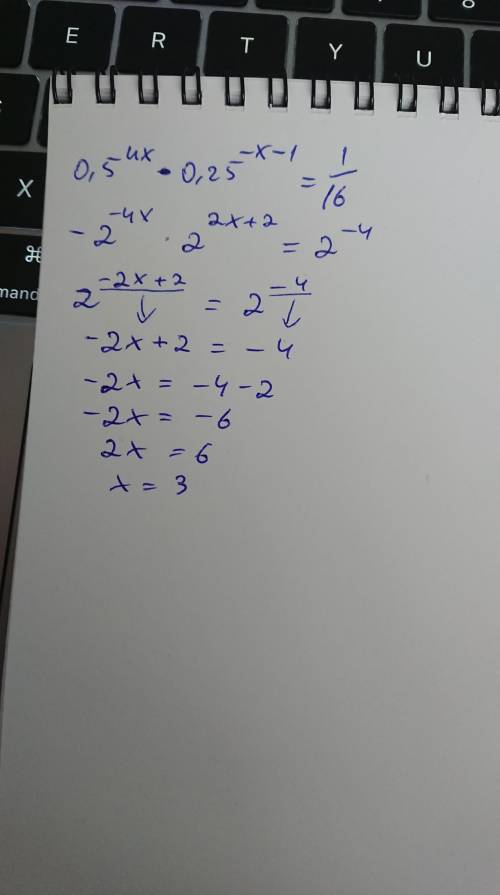 E R T Y U
X
⌘
mand
0,5^{4x} · 0,25^{-x-1} = 1/16
-2^{-4x} · 2^{2x+2} = 2^{-4}
2^{-2x+2} = 2^{-4}
↓ ↓
-2x+2 = -4
-2x = -4-2
-2x = -6
2x = 6
x = 3